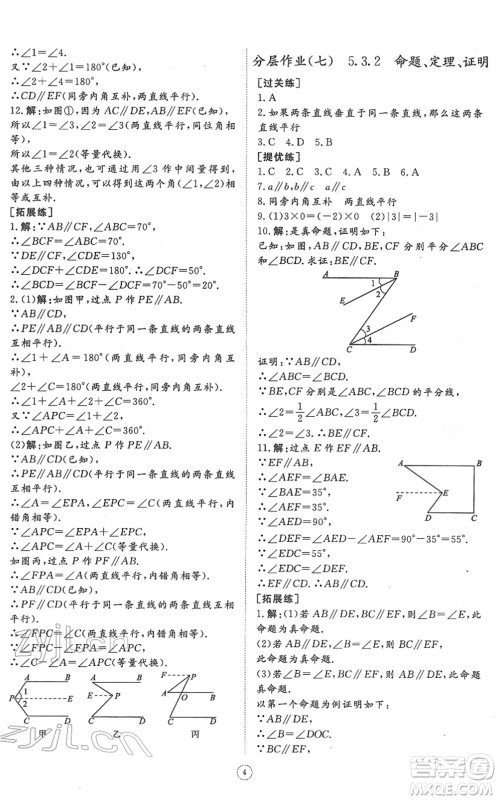 ∴∠1=∠4.
又∵∠1+∠2=180°(已知),
∴∠4+∠2=180°(等量代换).
∴CD∥EF(同旁内角互补,两直线平行).
12.解:如图①,因为AC∥BD(已知),
所以∠1=∠3(两直线平行,同位角相等).
所以∠1=∠2(等量代换).
其他三种情况,也可用量角器测量得到,由以上四种情况,可知∠2与∠1相等或互补.
[拓展练]
1.解:∵AB∥CF,∠ABC=70°,
∴∠BCF=∠ABC=70°.
∵DE∥CF,∠CDE=130°,
∴∠DCF+∠CDE=180°.
∴∠DCF=50°.
∴∠BCD=∠BCF-∠DCF=70°-50°=20°.
2.(1)解:如图甲,过点P作PE∥AB.
∵AB∥CD(已知),
∴PE∥CD(平行于同一条直线的两直线平行).
∴∠1+∠A=180°(两直线平行,同旁内角互补),
∠2+∠C=180°(两直线平行,同旁内角互补).
∴∠1+∠A+∠2+∠C=360°.
∴∠APC+∠A+∠C=360°.
(2)解:如图乙,过点P作PE∥AB.
∵AB∥CD(已知),
∴PE∥CD(平行于同一条直线的两直线平行).
∴∠A=∠EPA,∠EPC=∠C(两直线平行,内错角相等).
∴∠APC=∠A+∠C(等量代换).
(3)解:如图丙,过点P作PF∥AB.
∴∠FPA=∠A(两直线平行,内错角相等).
∵AB∥CD(已知),
∴PF∥CD(平行于同一条直线的两直线平行).
∴∠FPC=∠C(两直线平行,内错角相等).
∵∠FPC-∠FPA=∠APC,
∴∠C-∠A=∠APC(等量代换).
A B P 1 2 C D 甲
A B E P C D 乙
P F A B O C D 丙
分层作业(七) 5.3.2 命题、定理、证明
[过关练]
1.A
2.如果两条直线垂直于同一条直线,那么这两条直线平行
3.C 4.D 5.B
[提优练]
6.A
7.a∥b∥c a∥c
8.同旁内角互补 两直线平行
9.(1)3×0=(-2)×0 (2)|3|=|-3|
10.解:是真命题,证明如下:
已知:AB∥CD,BE,CF分别平分∠ABC和∠BCD.求证:BE∥CF.
A B 1 E 2 3 F 4 C D
证明:∵AB∥CD,
∴∠ABC=∠BCD.
∵BE,CF分别是∠ABC,∠BCD的平分线,
∴∠2=1/2∠ABC,∠3=1/2∠BCD.
∴∠2=∠3.∴BE∥CF.
11.解:∵EF∥AB,
∴∠BAE=∠AEF.
∵∠BAE=35°,
∴∠AEF=35°.
∵∠AED=90°,
∴∠DEF=∠AED-∠AEF=90°-35°=55°.
∵∠EDC=55°,
∴∠EDC=∠DEF.
∴EF∥CD.
A B F E D C
[拓展练]
1.解:(1)若AB∥DE,BC∥EF,则∠B=∠E,此命题为真命题.
(2)若AB∥DE,∠B=∠E,则BC∥EF,此命题为真命题.
(3)若∠B=∠E,BC∥EF,则AB∥DE,此命题为真命题.
以第一个命题为例证明如下:
∵AB∥DE,
∴∠B=∠DOC.
∵BC∥EF,
4
zyjl.cn
zyjl.cn